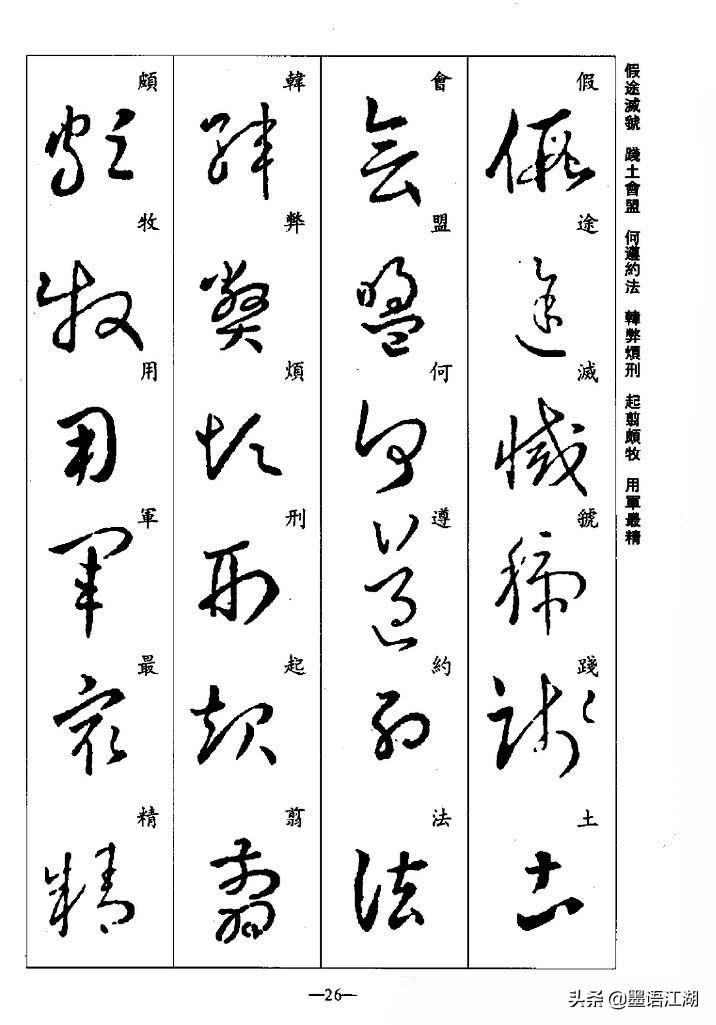 假途滅虢　踐土會盟　何遵約法　韓弊煩刑　起翦頗牧　用軍最精
假途滅虢踐土
會盟何遵約法
韓弊煩刑起翦
頗牧用軍最精
—26—
头条 @墨语江湖